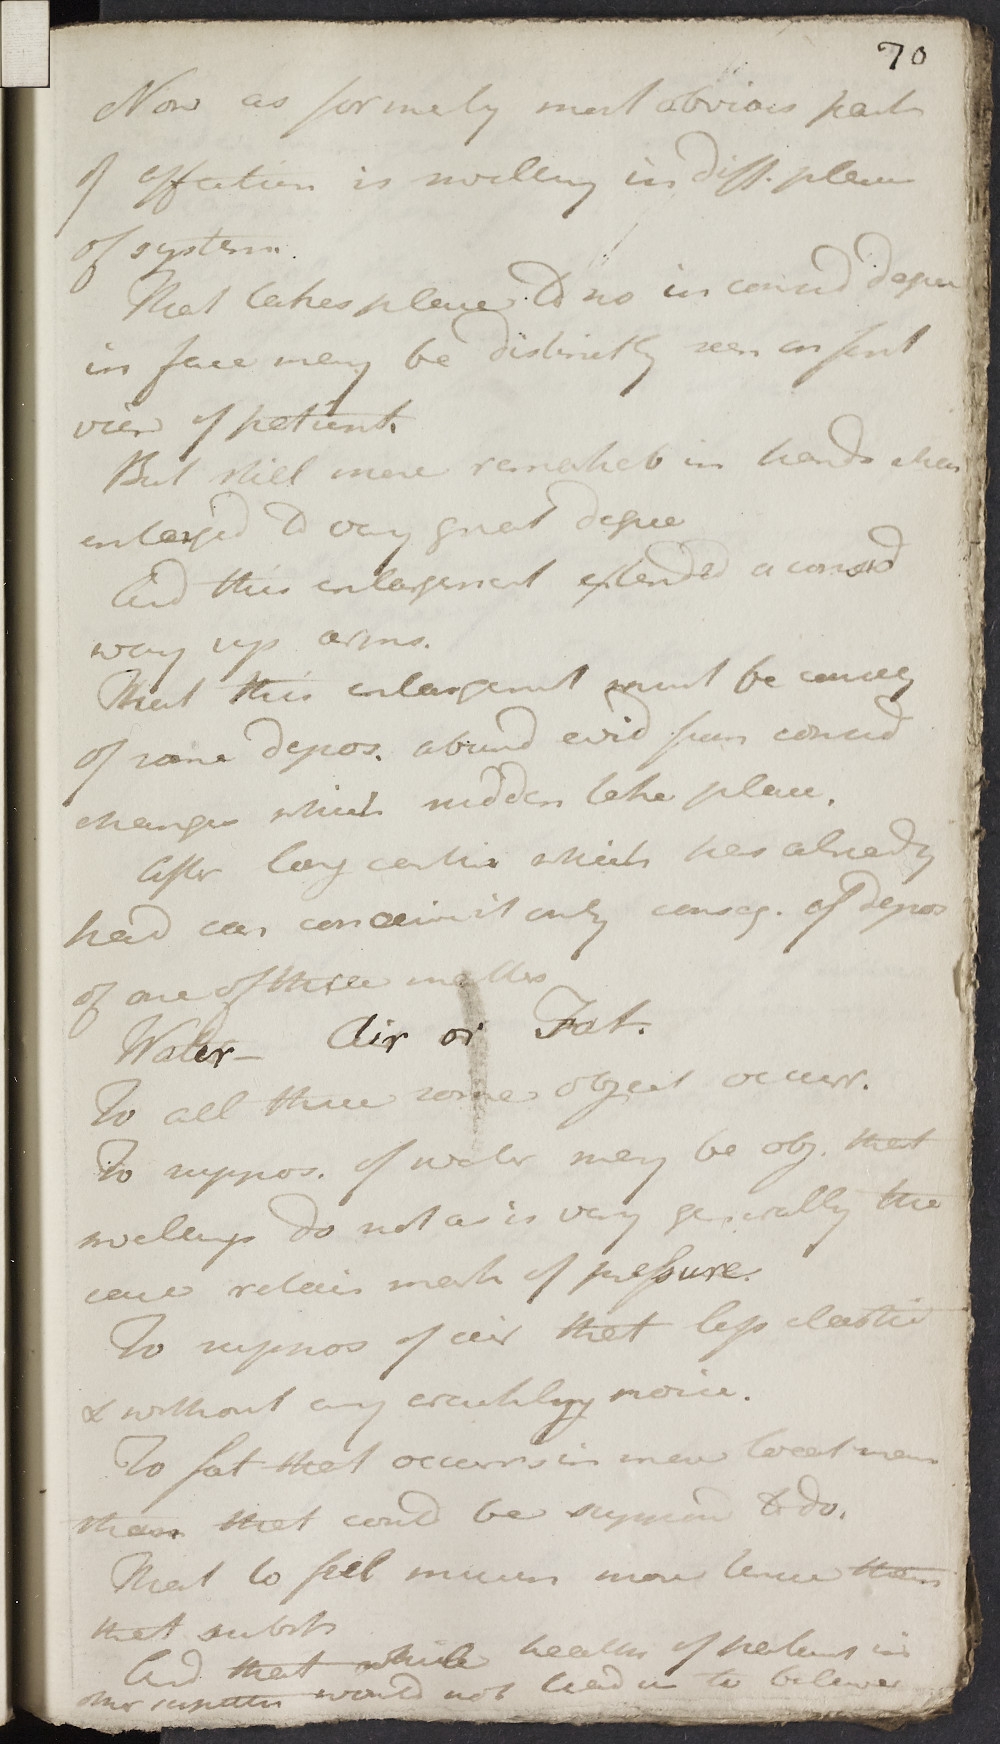 70
Now as formerly most obvious part
of affection is swelling in diff. places
of system.
That takes place to no in consid degree
in face may be distinctly seen on first
view of patient.
But still more remarkab in hands when
enlarged to very great degree
And this enlargement extended a consid
way up arms.
That this enlargement must be conseq
of some depos. abund evid from consid
changes which sudden take place.
After long continu which has already
had can conceive it only conseq. of depos
of one of these matters
Water - Air or Fat.
To all these some object occurr.
To suppos. of water may be obj. that
swellings do not as is very generally the
case retain mark of pressure.
To suppos of air that less elastic
& without any crackling noise.
To fat that occurrs in more local mann
than that could be supposed to do.
That to feel more tense than
that subst
And that while health of patient in
other respects would not lead us to believe